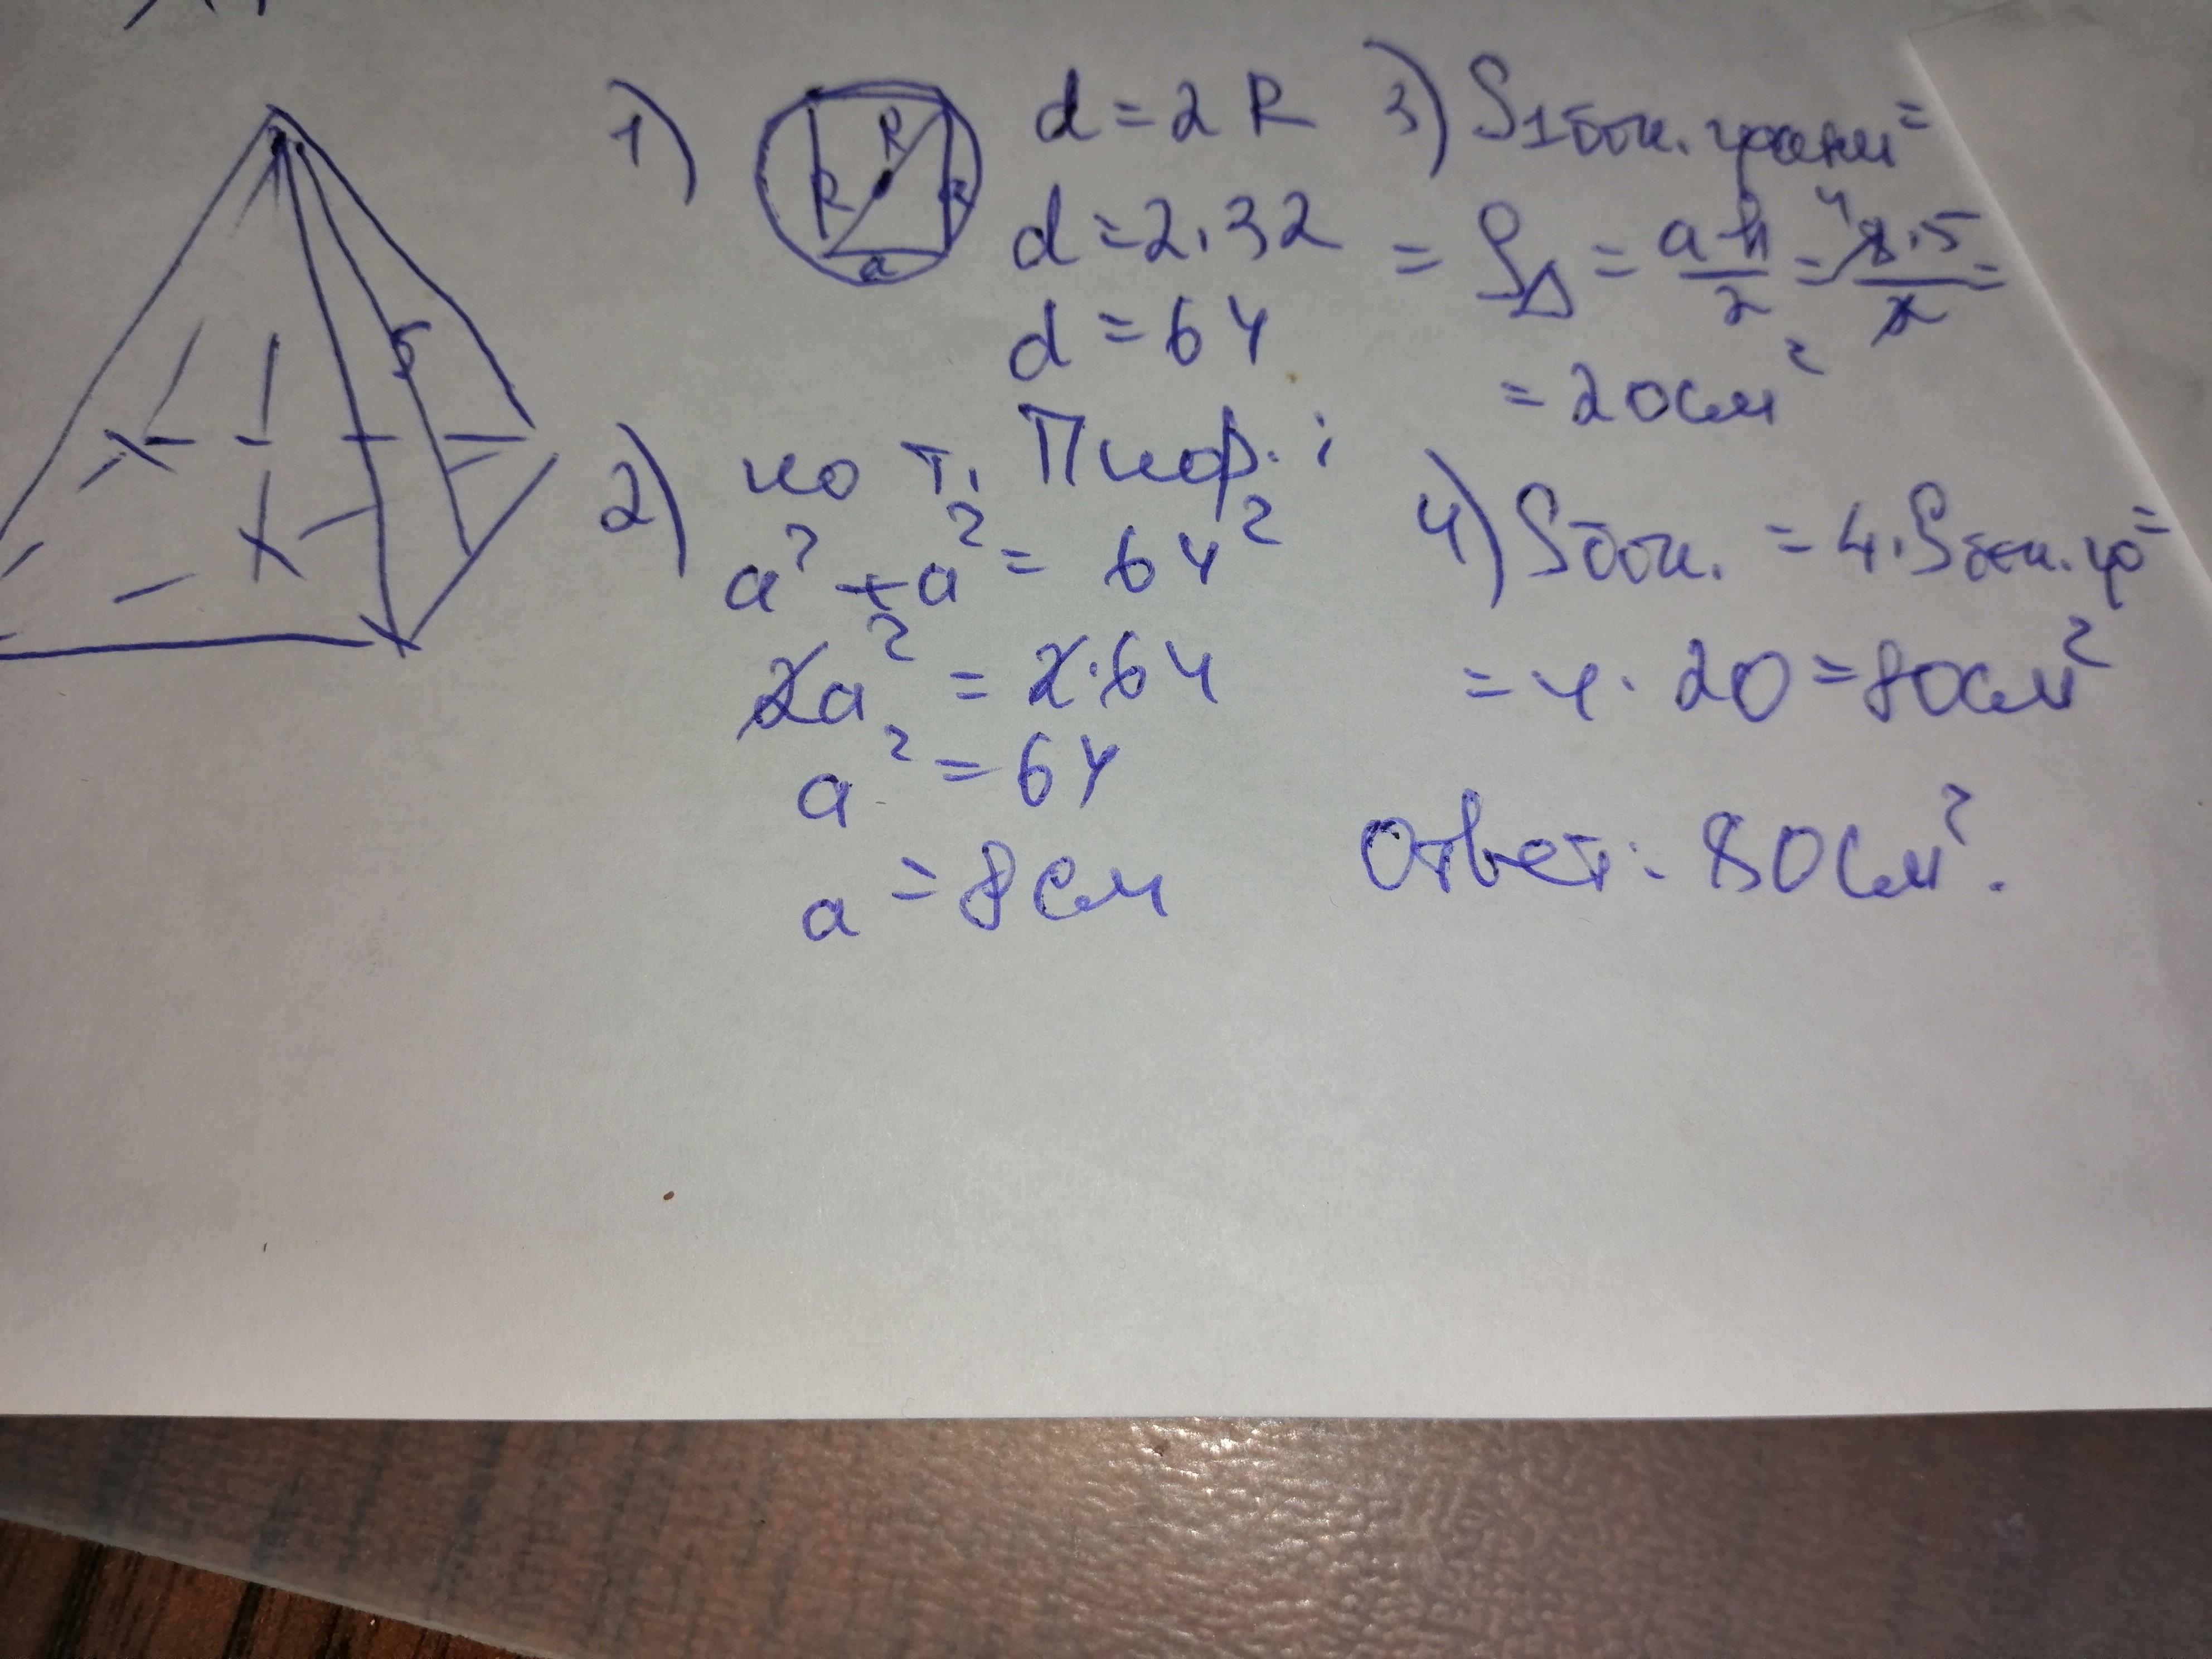 5
1) R R a a d = 2 R
d = 2 · 32
d = 64
2) по т. Пиф. :
a² + a² = 64²
2a² = 2·64
a² = 64
a = 8 см
3) S 1 бок. грани =
= S△ = a·h/2 = 8·5/2 =
= 20 см²
4) S бок. = 4·S бок. гр =
= 4 · 20 = 80 см²
Ответ: 80 см².